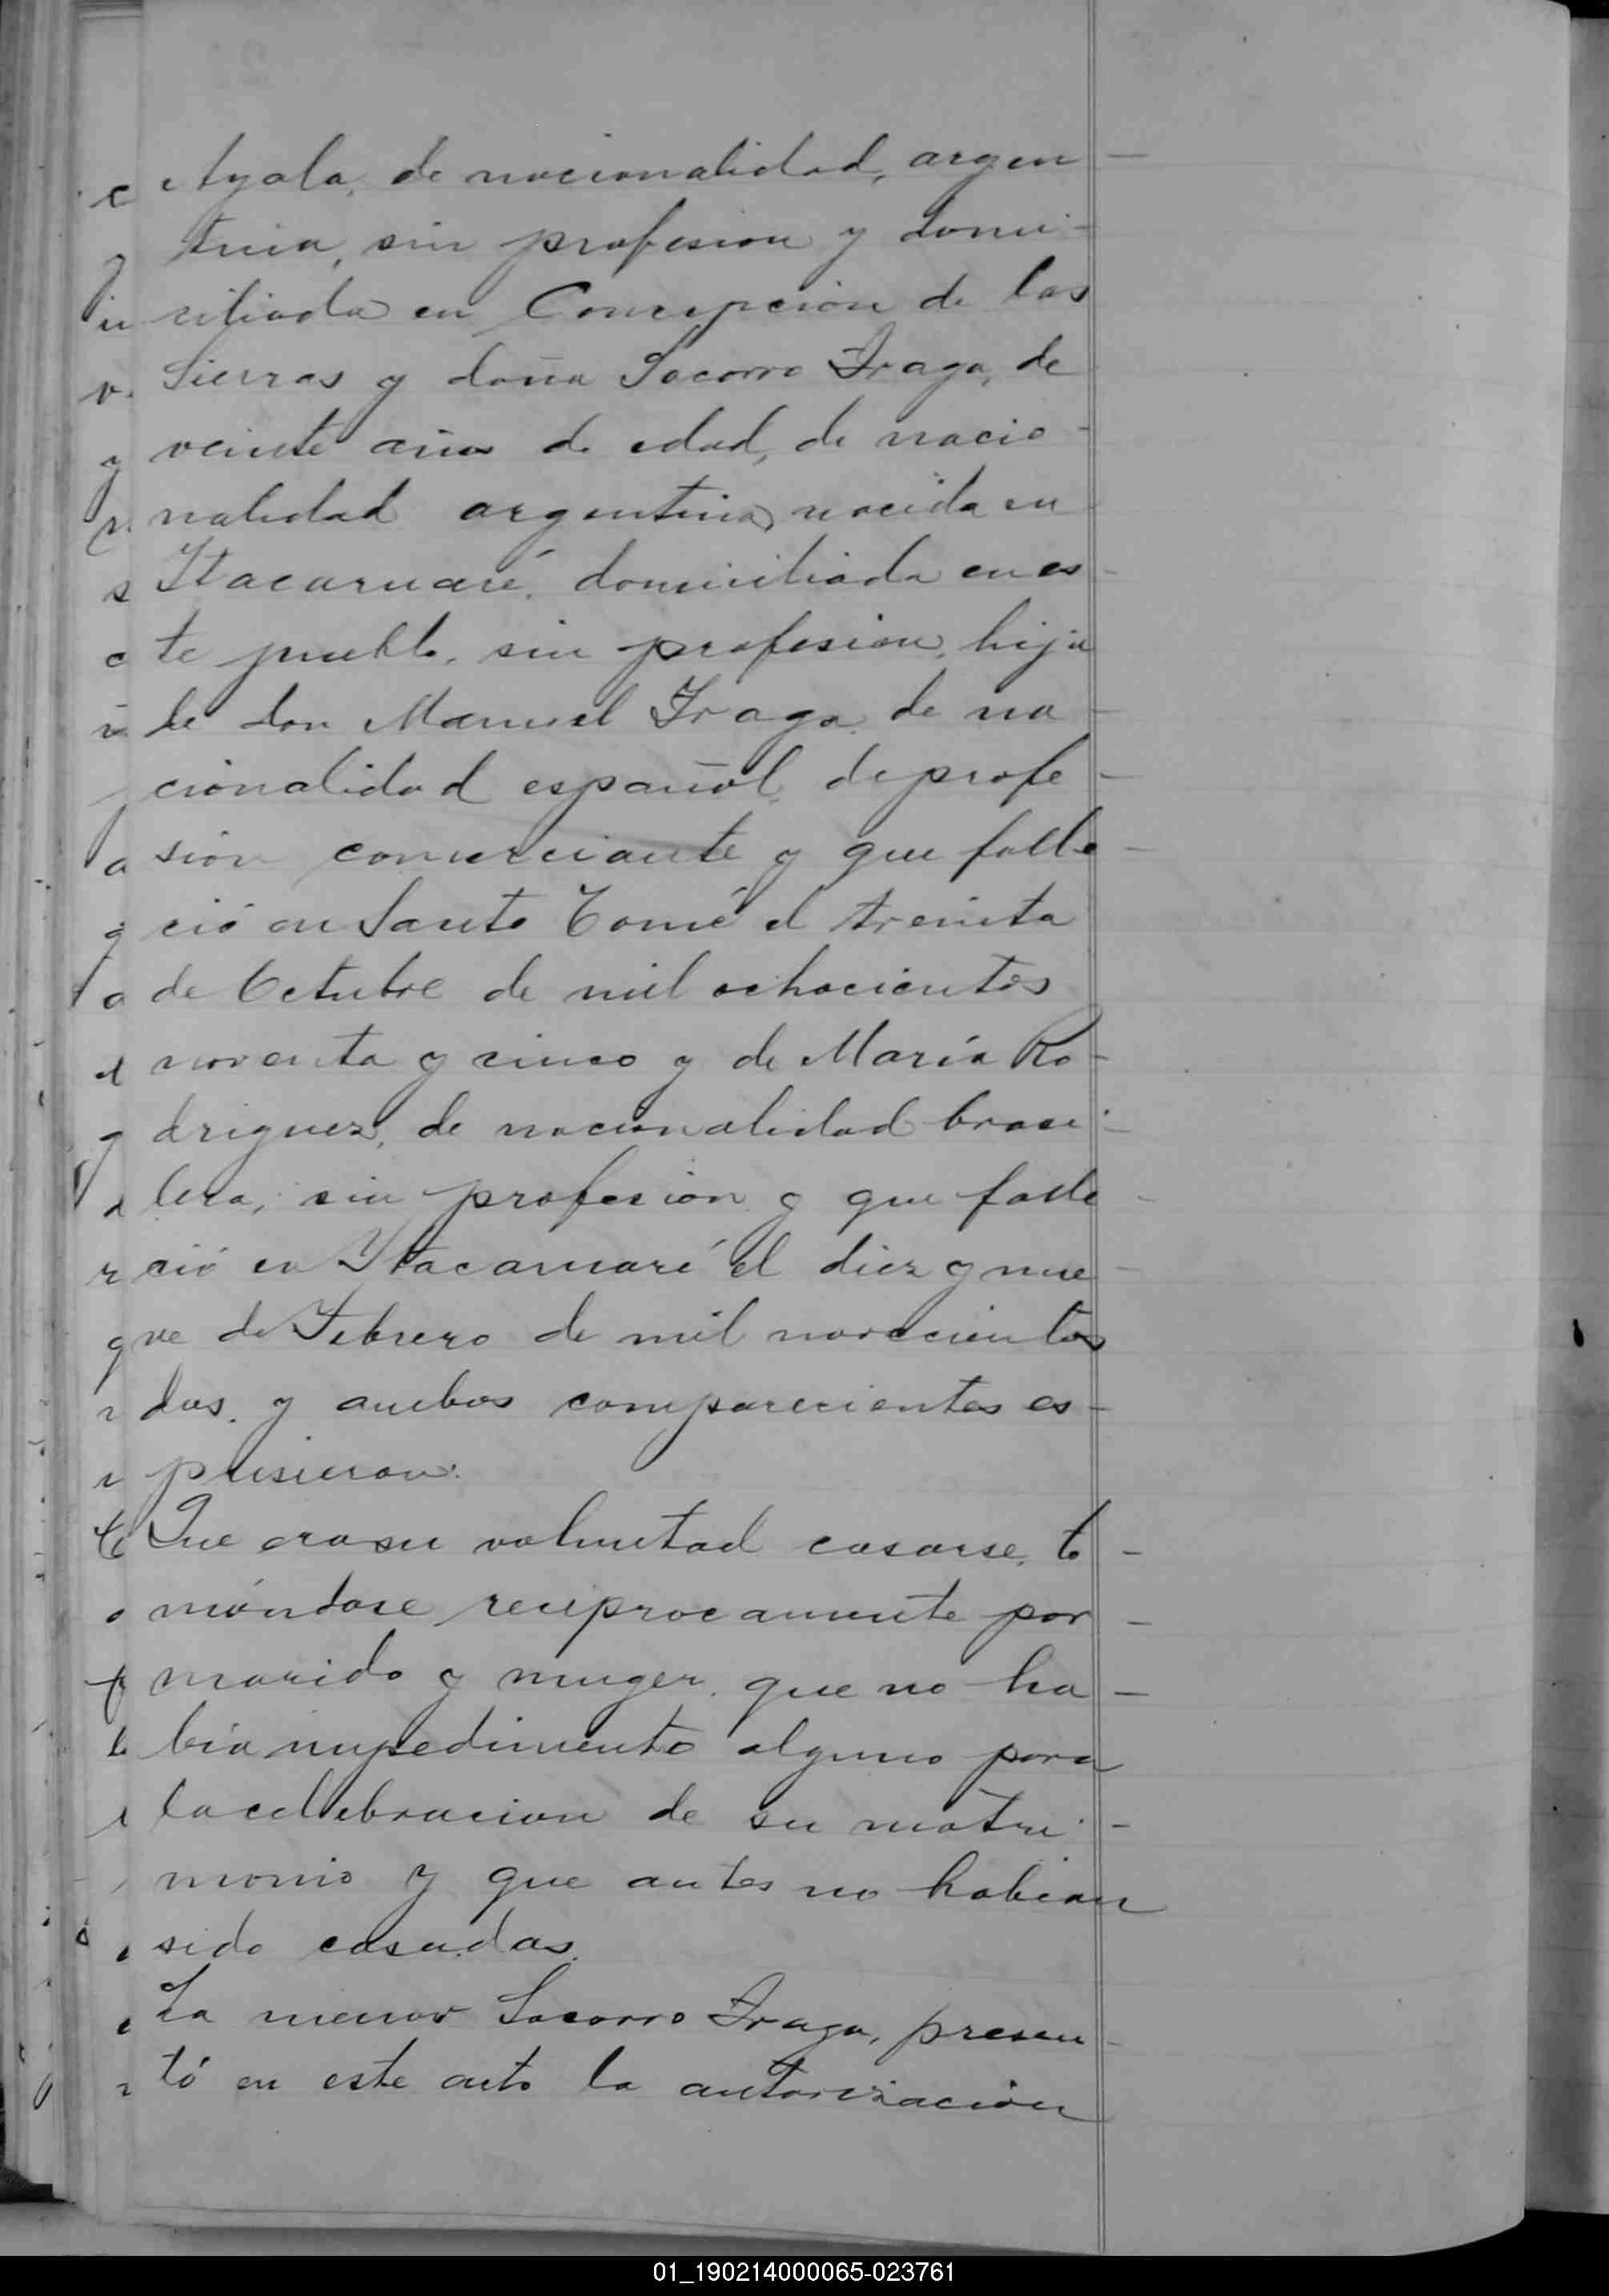 Ayala, de nacionalidad, argen
tina, sin profesion y domi-
ciliada en Concepcion de las
Sierras y doña Socorro Fraga, de
veinte años de edad, de nacio-
nalidad argentina, nacida en
Itacaruaré, domiciliada en es-
te pueblo, sin profesion, hija
de don Manuel Fraga, de na-
cionalidad español, de profe-
sion comerciante y que falle-
ció en Santo Tomé el treinta
de Octubre de mil ochocientos
noventa y cinco y de María Ro-
driguez, de nacionalidad brasi-
lera, sin profesion y que falle-
ció en Itacaruaré el diez y nue-
ve de Febrero de mil novecientos
dos, y ambos comparecientes es-
pusieron:
Que era su voluntad casarse, to-
mándose reciprocamente por
marido y muger, que no ha-
bía impedimento alguno para
la celebracion de su matri-
monio y que antes no habian
sido casados.
La menor Socorro Fraga, presen-
tó en este acto la autorización
01_190214000065-023761